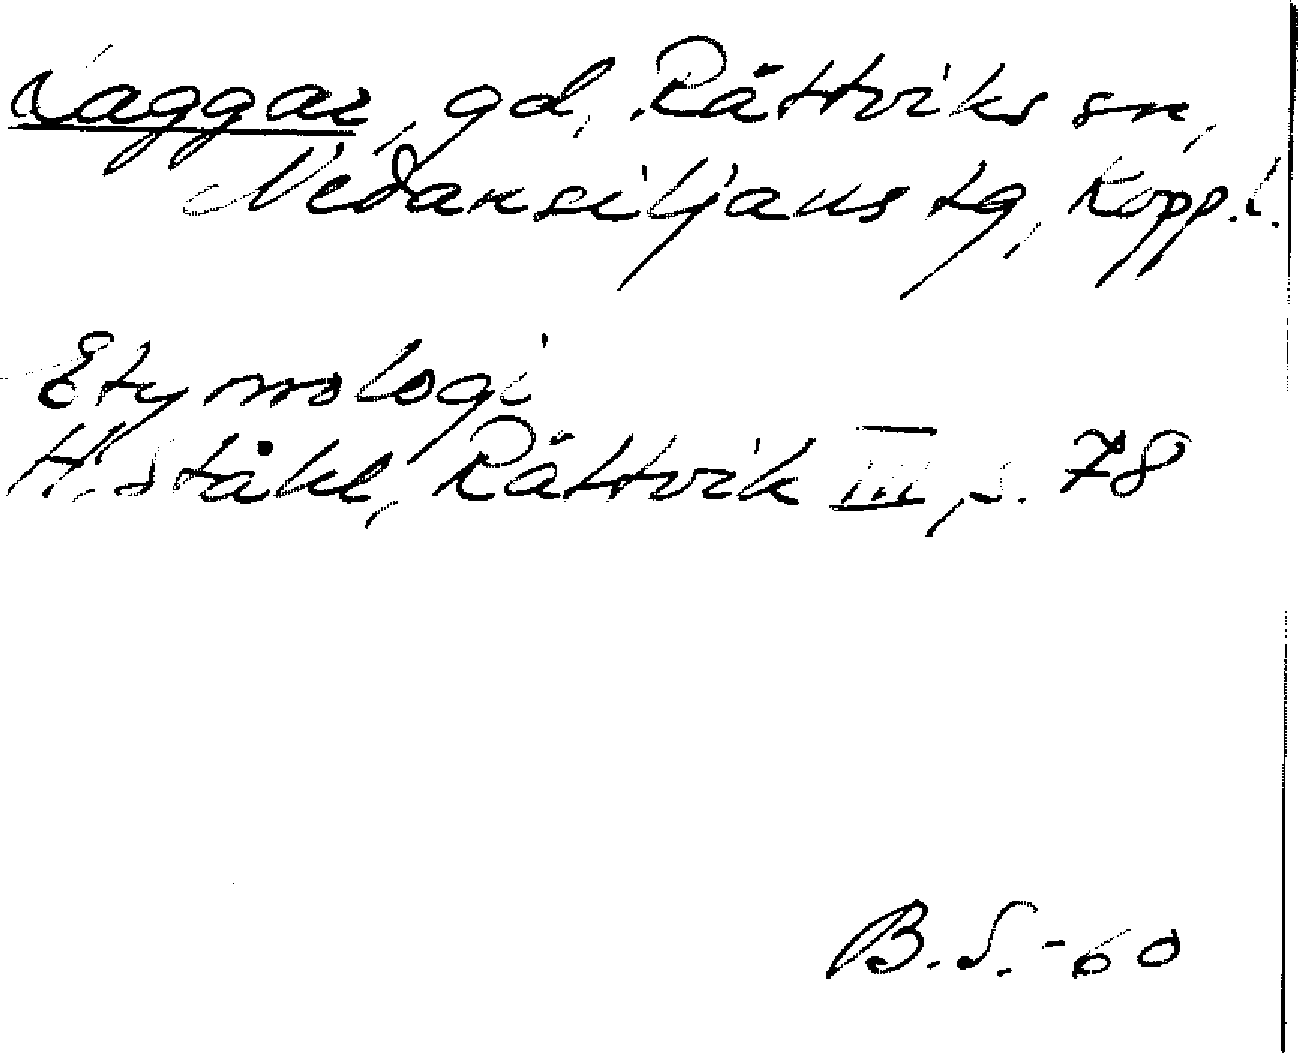 Laggar, gd, Rättviks sn,
Nedansiljans tg, Kopp.l.
Etymologi
H. Ståhl, Rättvik III, s. 78
B.S.-60